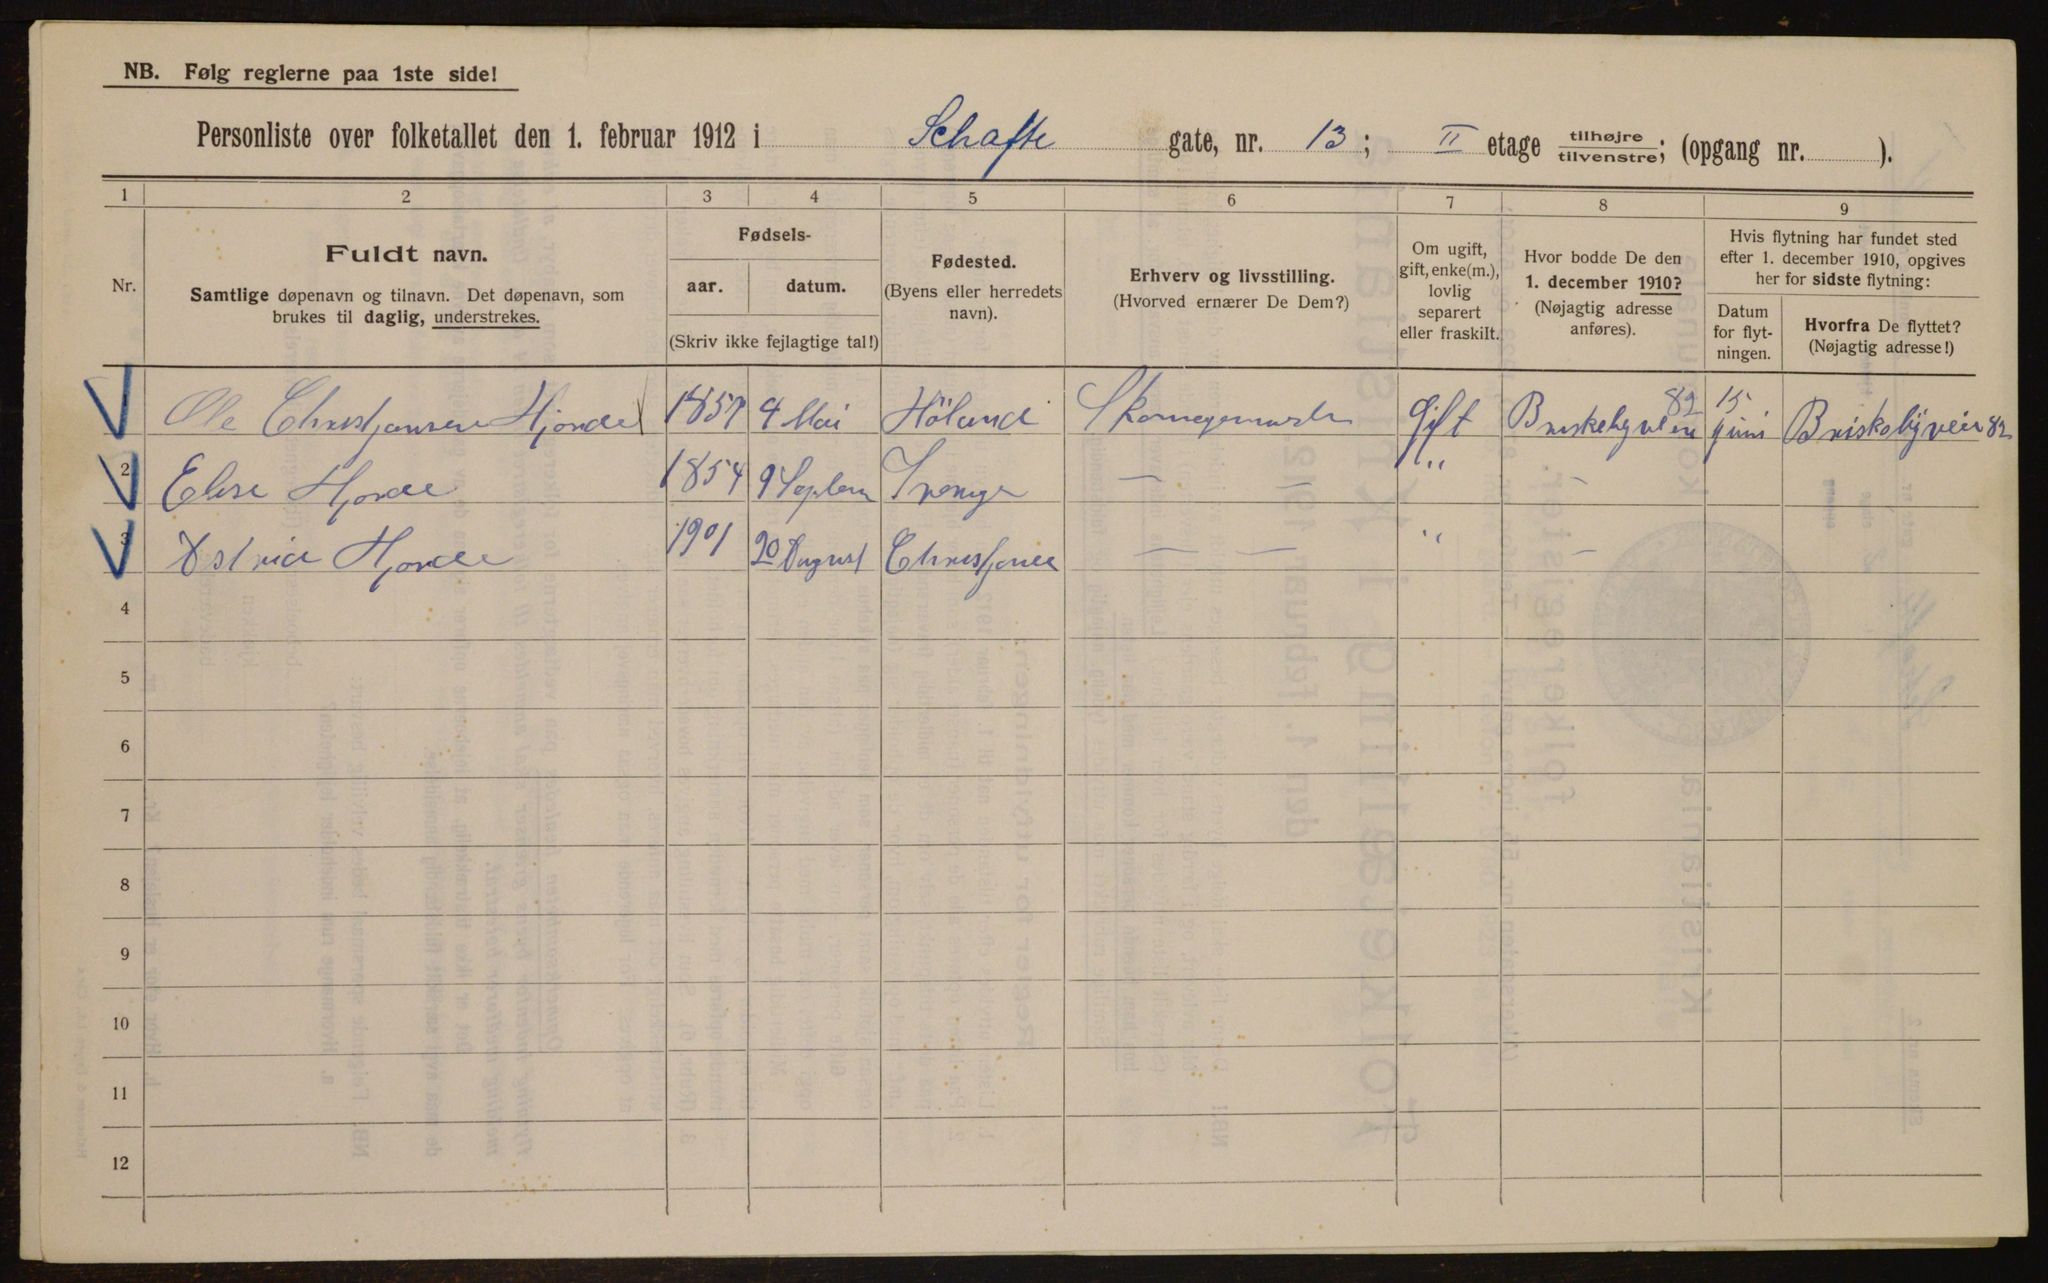 NB. Følg reglerne paa 1ste side!
Personliste over folketallet den 1. februar 1912 i Schafte gate, nr. 13; II etage tilhøjre/tilvenstre; (opgang nr. ).
1 2 3 4 5 6 7 8 9
Nr.
Fuldt navn.
Samtlige døpenavn og tilnavn. Det døpenavn, som
brukes til daglig, understrekes.
Fødsels-
aar. datum.
(Skriv ikke fejlagtige tal!)
Fødested.
(Byens eller herredets
navn).
Erhverv og livsstilling.
(Hvorved ernærer De Dem?)
Om ugift,
gift, enke(m.),
lovlig
separert
eller fraskilt.
Hvor bodde De den
1. december 1910?
(Nøjagtig adresse
anføres).
Hvis flytning har fundet sted
efter 1. december 1910, opgives
her for sidste flytning:
Datum
for flyt-
ningen.
Hvorfra De flyttet?
(Nøjagtig adresse!)
Ole Christjansen Hjorde 1857 4 Mai Höland Gift Briskebyveien 82 15 juni Briskebyveien 82
2 Elise Hjorde 1854 9 Septem — — " —
3 Astrid Hjorde 1901 20 August Christjania — — " —
4
5
6
7
8
9
10
11
12